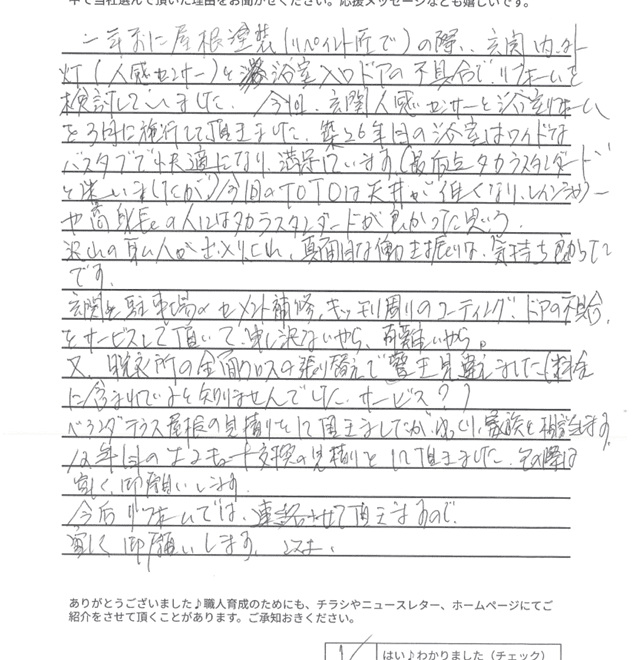 中で当社選んで頂いた理由をお聞かせください。応援メッセージなども嬉しいです。
一年前に屋根塗装(リペイント匠で)の際、玄関内外
灯(人感センサー)と浴室入口ドアの不具合で、リフォームを
検討していました。今回、玄関人感センサーと浴室リフォーム
を3月に施行して頂きました。築26年目の浴室はワイドな
バスタブで快適になり、満足しています。(最後迄タカラスタンダード
と迷いましたが)今回のTOTOは天井が低くなり、レインシャワー
や高身長の人にはタカラスタンダードが良かったと思う。
沢山の職人が出入りしたが、真面目な働き振りは、気持ち良かった
です。
玄関と駐車場のセメント補修、キッチン周りのコーティング、ドアの不具合、
をサービスして頂いて、申し訳ないやら、有難いやら。
又、脱衣所の全面クロスの張り替えで見違えました(料金
に含まれているを知りませんでした。サービス?)
ベランダテラス屋根の見積りをして頂きましたが、ゆっくり、家族と相談します。
エコキュート交換の見積りをして頂きました。その際は
宜しく御願いします。
今后リフォームでは、連絡させて頂きますので、
宜しく御願いします。以上、
ありがとうございました♪職人育成のためにも、チラシやニュースレター、ホームページにてご
紹介をさせて頂くことがあります。ご承知おきください。
はい♪わかりました(チェック)